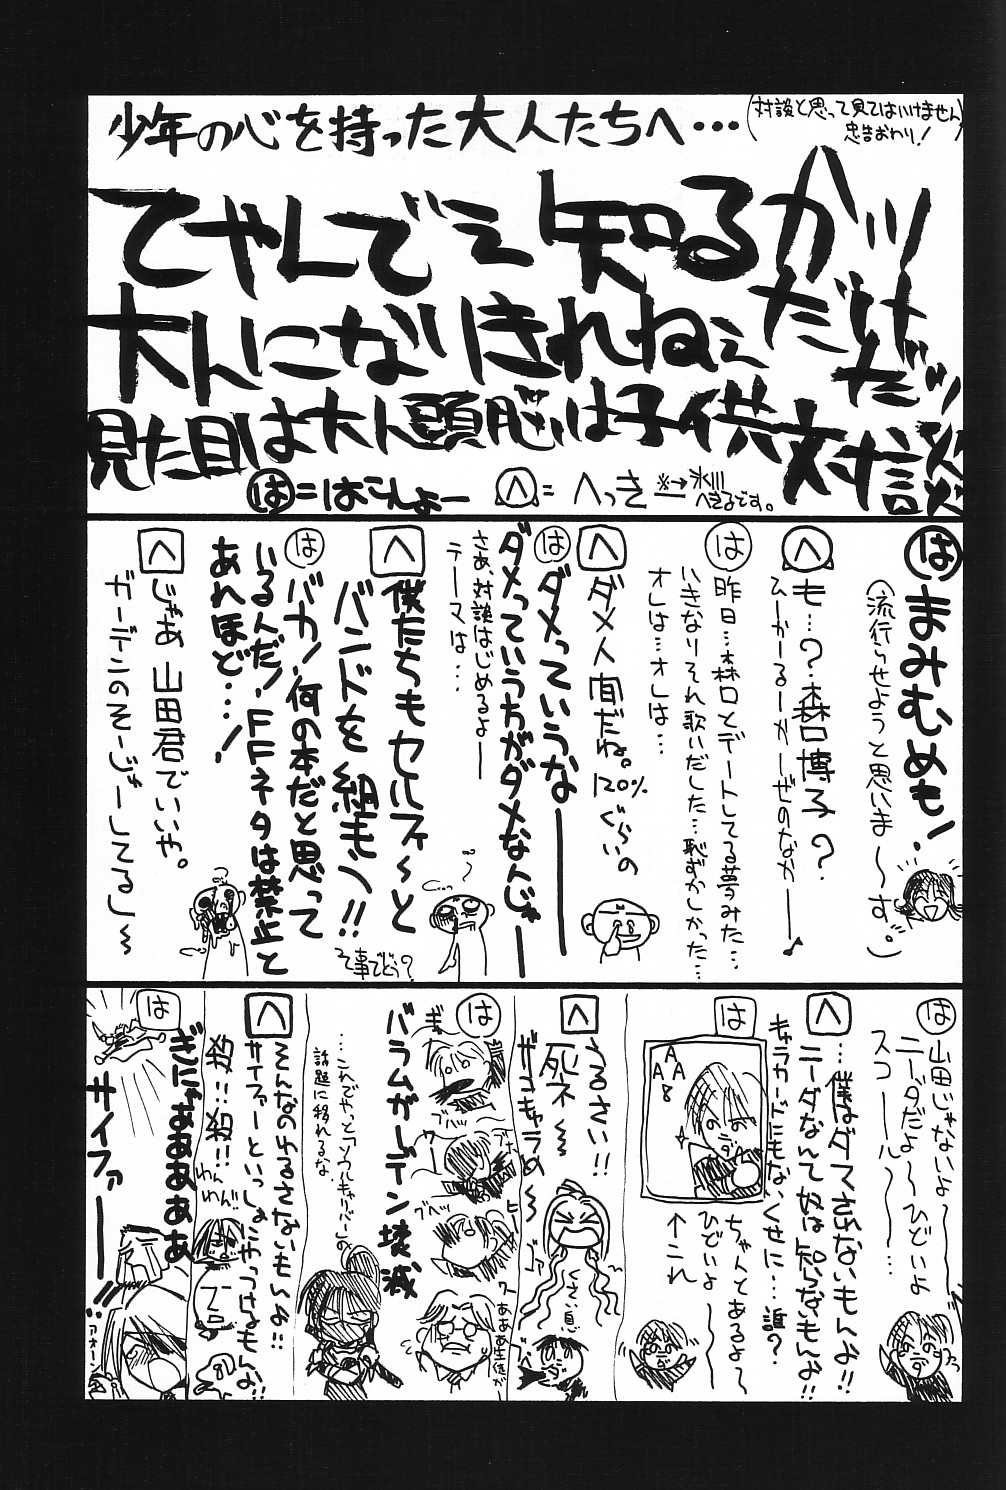 少年の心を持った大人たちへ・・・
(対談と思って見てはいけません
忠告おわり!)
てやんでぇ知るかッ
大人になりきれねぇだけだッ
見た目は大人頭脳は子供対談
は=はこんよー
へ=へっき
※→氷川
へきるです。
は まみむめも!
(流行らせようと思いま〜す。)
へ も…?森口博子?
ひーかーるーかーぜのなかー♪
は 昨日…森口とデートしてる夢みた…
いきなりそれ歌いだした…恥ずかしかった…
オレは…オレは…
へ ダメ人間だね。120%ぐらいの
は ダメっていうなーーー
ダメっていう方がダメなんじゃーー
さぁ、対談はじめるよー
テーマは…
へ 僕たちもセルフィ〜と
バンドを組もう!!
て事でどう?
は バカ!何の本だと思って
いるんだ!FFネタは禁止と
あれほど…!
へ じゃあ山田君でいいや。
ガーデンのそーじゃーしてるし〜
は 山田じゃないよ〜
ニーダだよ〜ひどいよ
スコール〜…
へ …僕はダマされないもんよ!!
ニーダなんて奴は知らないもんよ!!
キャラカードにもないくせに…誰?
は ちゃんとあるよ〜
ひどいよ〜
↑コレ
A
A A
8
へ うるさい!!
死ネ〜
ザコキャラめ〜
くさい息
は バラムガーデン壊滅
ぎゃ
ブハッ
ブヘッ
ヒー
ワーあああ生徒が
…これでやっとソウルキャリバーの
話題に移れるな
へ そんなのゆるさないもんよ!!
サイファーといっしょにやっつけるもんよ!!
殺…殺!!
わん
わんわん
は ぎにゃああああぁ
サイファーーー!!
アオーン